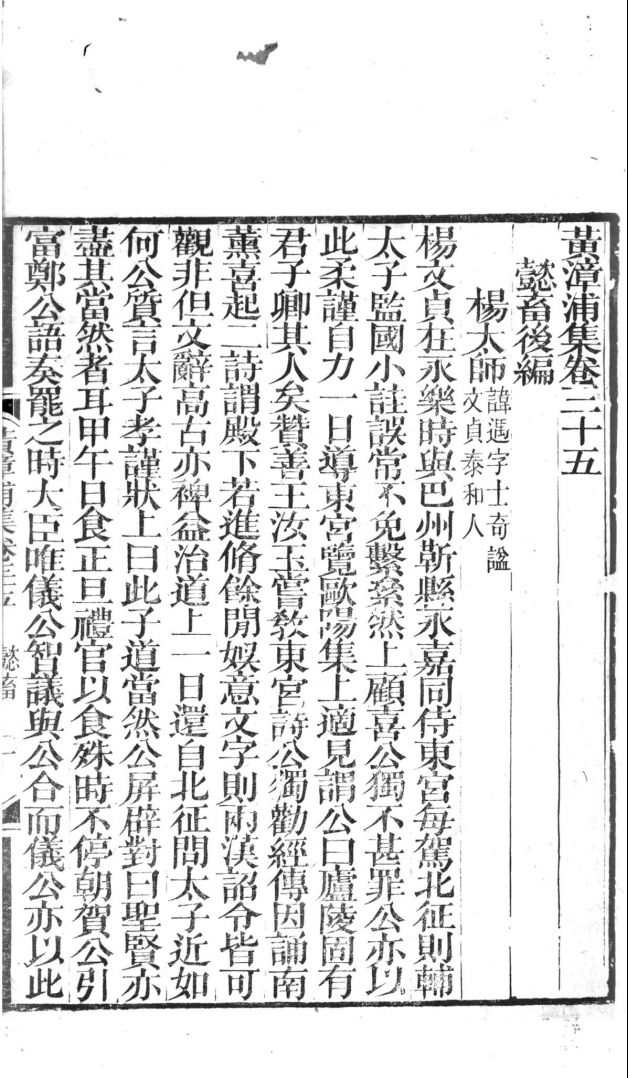 黃漳浦集卷二十五
懿畜後編
楊太師
諱遇字士奇諡
文貞泰和人
楊文貞在永樂時與巴州蘄縣永嘉同侍東宮每駕北征則輔
太子監國小詿誤常不免繫索然上顧喜公獨不甚罪公亦以
此柔謹自力一日導東宮覽歐陽集上適見謂公曰廬陵固有
君子卿其人矣贊善王汝玉嘗敎東宮詩公獨勸經傳因誦南
薰喜起二詩謂殿下若進脩餘閒娛意文字則兩漢詔令皆可
觀非但文辭高古亦裨益治道上一日還自北征問太子近如
何公質言太子孝謹狀上曰此子道當然公屏辟對曰聖賢亦
盡其當然者耳甲午日食正旦禮官以食殊時不停朝賀公引
富鄭公語奏罷之時大臣唯儀公智議與公合而儀公亦以此
黃漳浦集卷二十五 懿畜 一